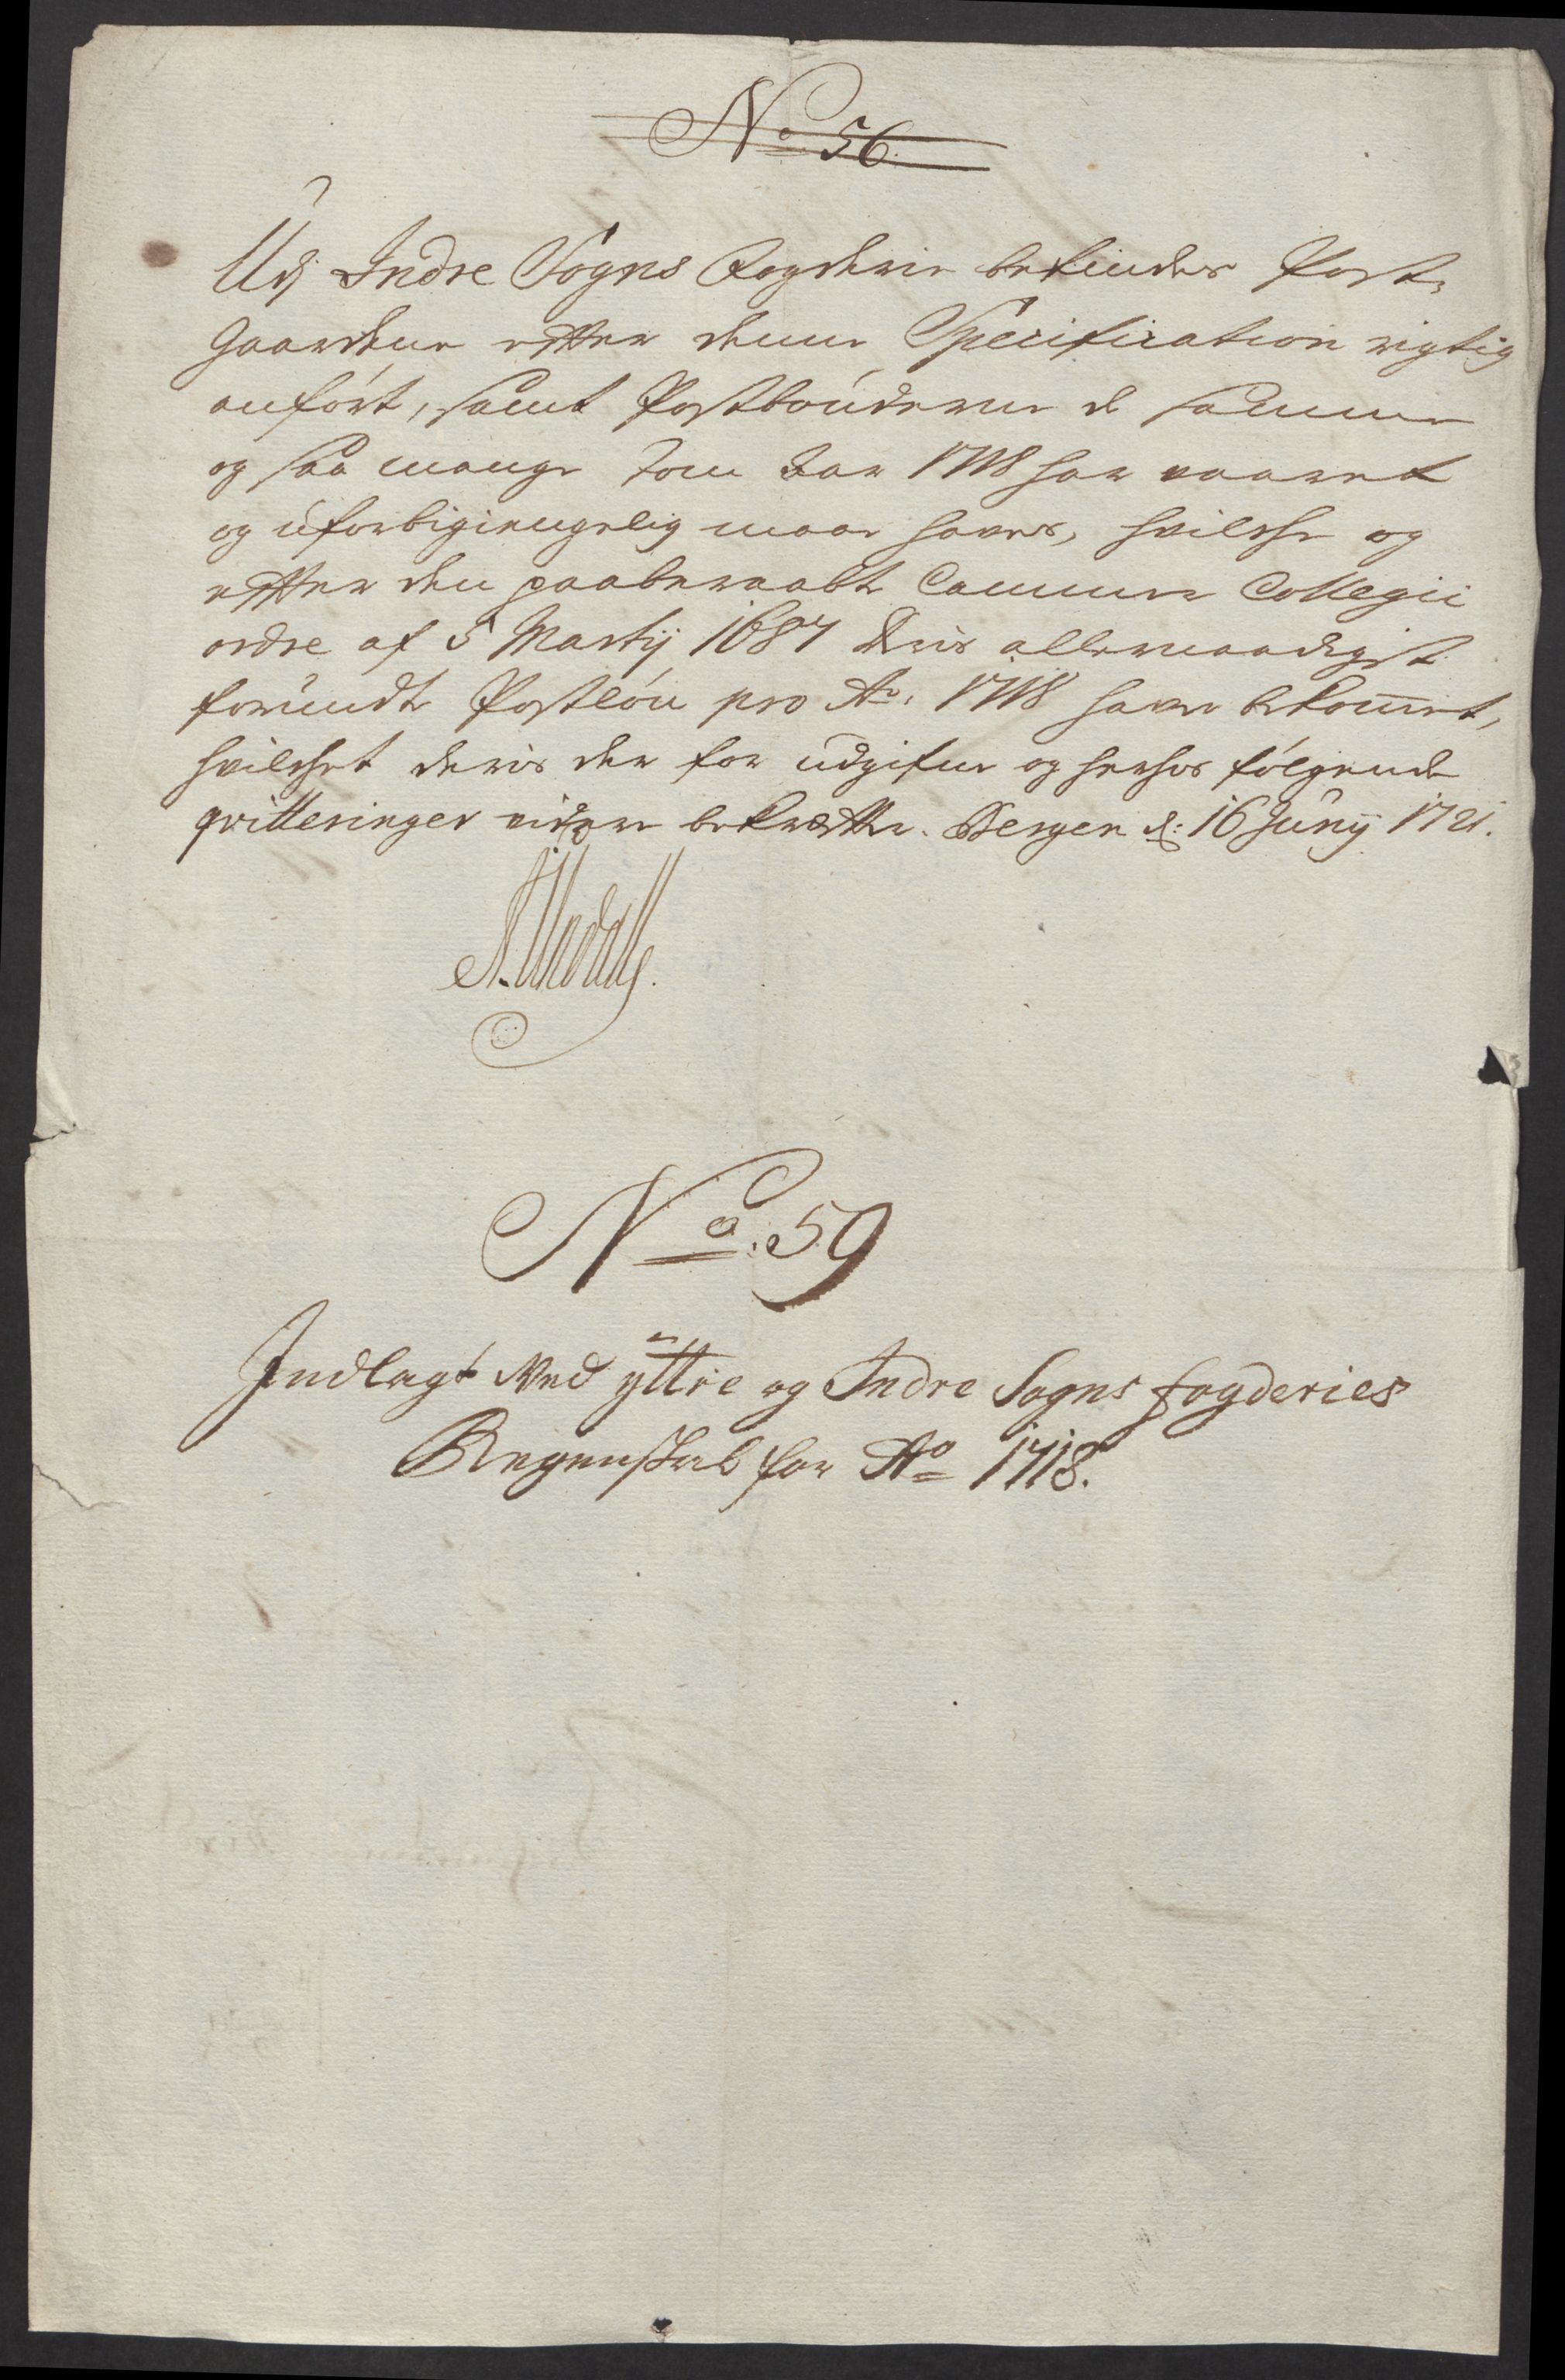 No 56.
Udj Indre Sogns Fogderie befindes Post-
Gaardene efter denne Specification rigtig
anfört, samt Postbönderne de samme
og saa mange som Aar 1718 har vaaret
og uforbigiengelig maae haves, hvilche og
efter den paaberaabte Cammer Collegii
ordre af 5 Martij 1687 deris allernaadigst
forundte Postlön pro Ao. 1718 have bekommet,
hvilchet deris der for udgifne og herhos fölgende
qvitteringer videre bekræfter. Bergen d: 16 Junij 1721.
No: 59
Indlagt Med yttre og Indre Sogns fogderies
Regenskab for Ao 1718.